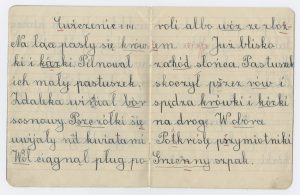 Ćwiczenie
Na łące pasły się krów
ki i kózki. Pilnował
ich mały pastuszek.
Zdaleka widział bór
sosnowy. Pszczółki się
uwijały nad kwiatami
Wół ciągnął pług po
roli albo wóz ze zboż
em. Już blisko
zachód słońca. Pastuszek
skoczył przez rów i
spędza krówki i kózki
na drogę. W oborze
Podkreślić przymiotniki